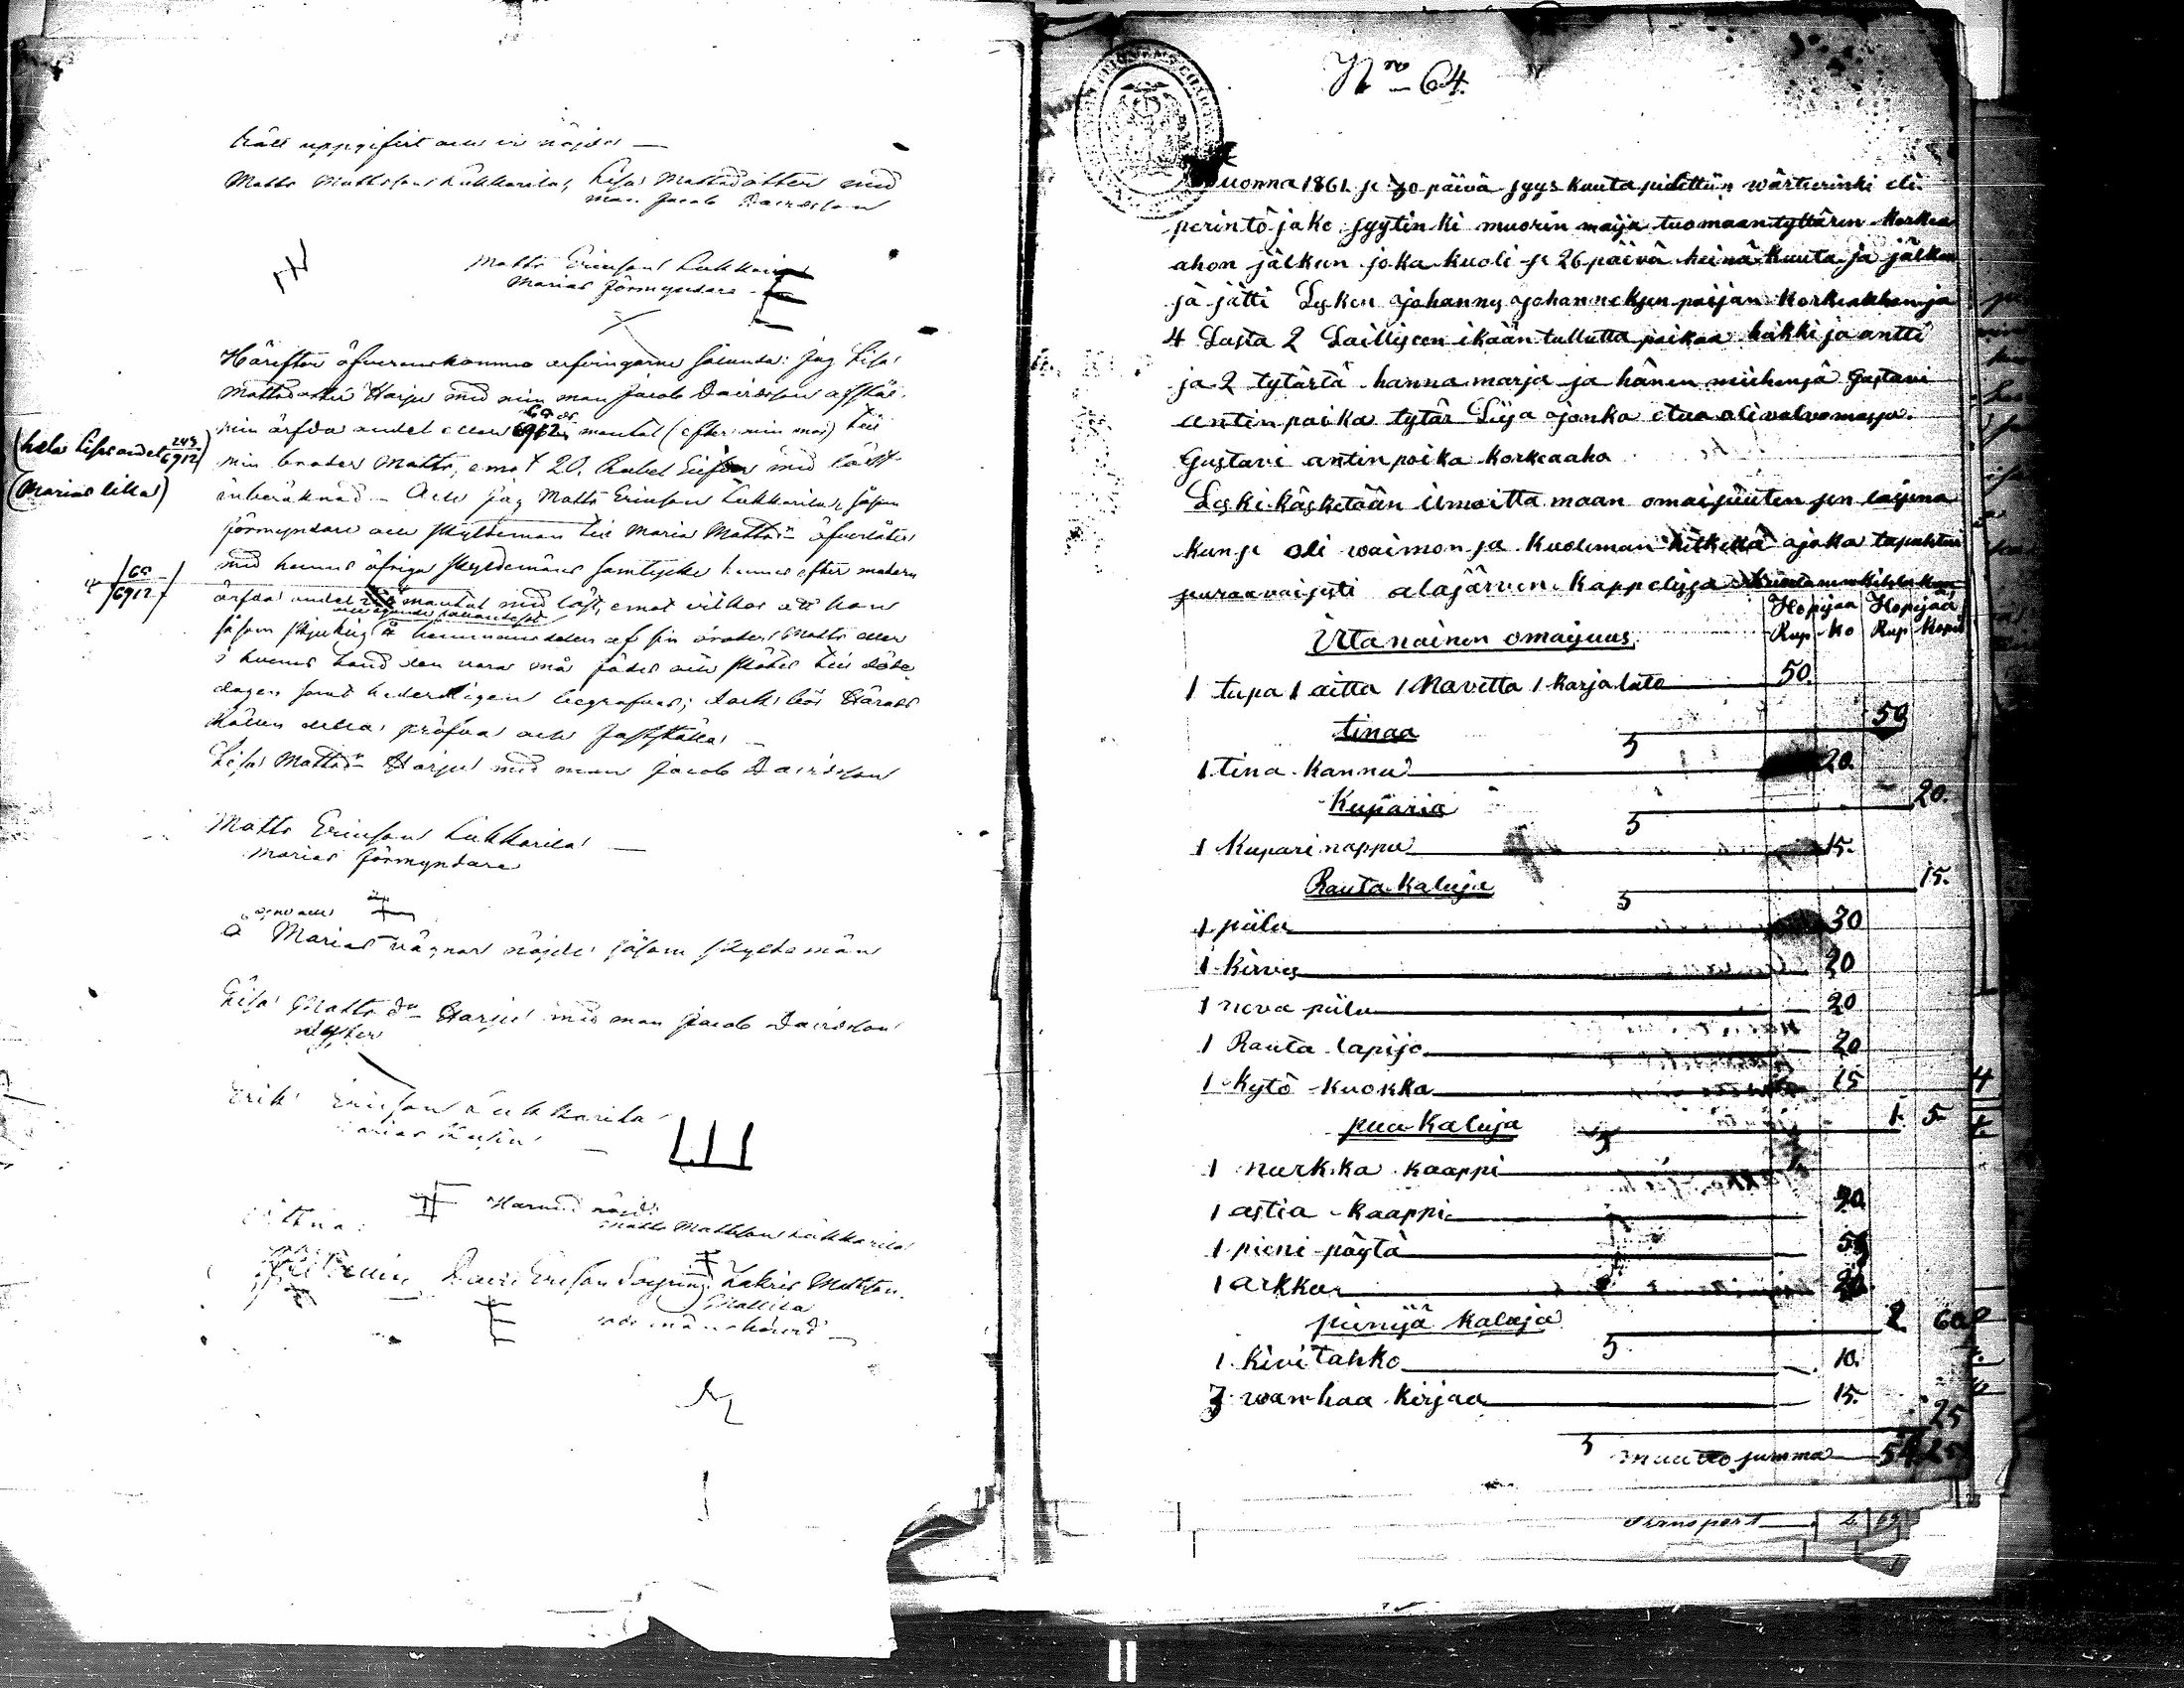 rätt uppgifvit och är nöjde —
Matts Mattsson Lukkarila, Lisa Mattsdotter med
man Jacob Davidsson
Matts Ericson Lukkarila
Marias Förmyndare
Härefter öfverenskommo arfvingarne sålunda: jag Lisa
Mattsdotter Harju med min man Jacob Davidsson
min ärfda andel mantal (efter min mor) till
min broder Matts, emot 20 Rubel Silfver med löst
inberäknad — Och jag Matts Ericson Lukkarila, såsom
förmyndare och skyldeman till Maria Mattsdr öfverlåter
med hennes öfriga skyldemäns samtycke hennes efter modern
ärfda andel mantal med löst, emot vilkor att hon
såsom sjuklig å hemmansdelen af sin broder Matts eller
i hvems hand den vara må födes och skötes till döde
dagen samt hederligen begrafves; dock bör Härads
Rätten detta pröfva och fastställa —
Lisa Mattsdr Harju med man Jacob Davidsson
(hela Lisas andel 245/6912)
(Marias lika)
69/6912
Matts Ericson Lukkarila —
Marias förmyndare
å Marias vägnar nöjde såsom skyldemän
Lisa Mattsdr Harju med man Jacob Davidsson
syster
Erik Ericson Lukkarila
Marias kusin —
Härmed nöjd:
Matts Mattsson Lukkarila
Vittna:
David Ericson Zakris Mattson
Nro 64.
Vuonna 1861 se 30 päivä syys kuuta pidettiin wärteerinki eli
perintö jako syytinki muorin maija tuomaantyttären korkea
ahon jälkeen joka kuoli se 26 päivä heinä kuuta ja jälken
sä jätti Lesken Johannes Johanneksen poijan Korkeakhon ja
4 Lasta 2 Lailliseen ikään tullutta poikaa heikki ja antti
ja 2 tytärtä hanna marja ja hänen miehensä Gustavi
antin poika tytär Liisa jonka etua oli valvomassa
Gustavi antin poika korkeaho
Leski käsketään ilmoitta maan omaisuuten sen laisena
kun se oli waimonsa kuoleman hetkellä joka tapahtui
puraavaisesti alajärven kappelissa
Hopijaa Hopijaa
Rup Ko Rup Kopio
Irtanainen omaisuus
1 tupa 1 aitta 1 Navetta 1 karja lato 50.
tinaa 50
1 tina kannu 20.
Kuparia 20.
1 kupari nappu 15.
Rauta kaluja 15.
1 piilu 30
1 kirves 20
1 neva piilu 20
1 Rauta lapijo 20
1 kytö kuokka 15
puu kaluja 1. 5
1 nurkka kaappi
1 astia kaappi 30
1 pieni pöytä 50
1 arkku 20
piiniä kaluja 2 60
1 kivi tahko 10.
3 wanhaa kirjaa 15.
25
muutto summa 54 25
Transport